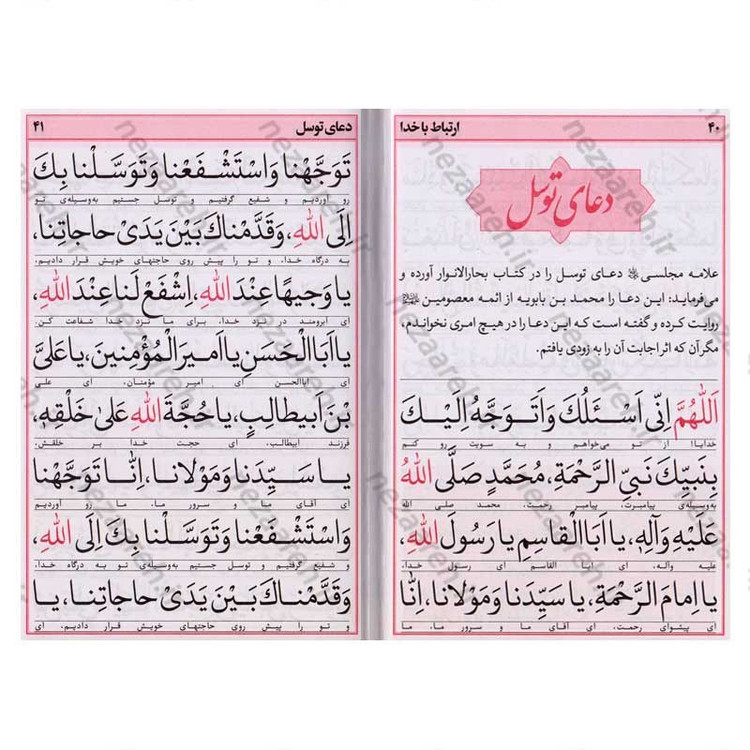 ۴۰
ارتباط با خدا
دعای توسل
علامه مجلسی دعای توسل را در کتاب بحارالانوار آورده و
می‌فرماید: این دعا را محمد بن بابویه از ائمه معصومین
روایت کرده و گفته است که این دعا را در هیچ امری نخواندم،
مگر آن که اثر اجابت آن را به زودی یافتم.
اَللّٰهُمَّ اِنّی اَسْئَلُكَ وَاَتَوَجَّهُ اِلَیْكَ
خدایا! از تو می‌خواهم و به سویت رو کنم
بِنَبِیِّكَ نَبِیِّ الرَّحْمَةِ، مُحَمَّدٍ صَلَّی اللّٰهُ
به‌وسیله‌ی پیامبرت، پیامبر رحمت، محمد صلی الله
عَلَیْهِ وَآلِهِ، یا اَبَاالْقاسِمِ یا رَسُولَ اللّٰهِ،
علیه وآله، ای اباالقاسم ای رسول خدا،
یا اِمامَ الرَّحْمَةِ، یا سَیِّدَنا وَمَوْلانا، اِنّا
ای پیشوای رحمت، ای آقای ما و سرور ما، ما
دعای توسل
۴۱
تَوَجَّهْنا وَاسْتَشْفَعْنا وَتَوَسَّلْنا بِكَ
رو آوردیم و شفیع گرفتیم و توسل جستیم به‌وسیله‌ی تو
اِلَی اللّٰهِ، وَقَدَّمْناكَ بَیْنَ یَدَیْ حاجاتِنا،
به درگاه خدا، و تو را پیش روی حاجتهای خویش قرار دادیم،
یا وَجیهاً عِنْدَ اللّٰهِ، اِشْفَعْ لَنا عِنْدَ اللّٰهِ،
ای آبرومند در نزد خدا، برای ما نزد خدا شفاعت کن.
یا اَبَاالْحَسَنِ یا اَمیرَ الْمُؤْمِنینَ، یا عَلِیَّ
ای اباالحسن ای امیر مؤمنان، ای علی
بْنَ اَبیطالِبٍ، یا حُجَّةَ اللّٰهِ عَلیٰ خَلْقِهِ،
فرزند ابیطالب، ای حجت خدا بر خلقش،
یا سَیِّدَنا وَمَوْلانا، اِنّا تَوَجَّهْنا
ای آقای ما و سرور ما، ما رو آوردیم
وَاسْتَشْفَعْنا وَتَوَسَّلْنا بِكَ اِلَی اللّٰهِ،
و شفیع گرفتیم و توسل جستیم به‌وسیله‌ی تو به درگاه خدا،
وَقَدَّمْناكَ بَیْنَ یَدَیْ حاجاتِنا، یا
و تو را پیش روی حاجتهای خویش قرار دادیم، ای
nezaareh.ir